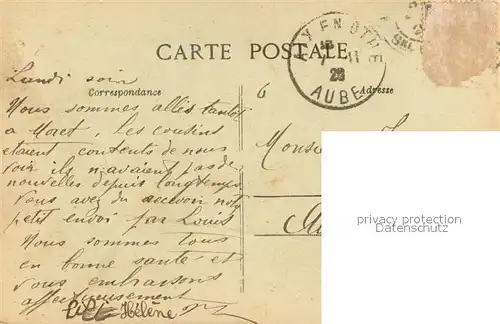 CARTE POSTALE
Correspondance
Adresse
AIX EN OTHE
11
23
AUBE
Lundi soir
Nous sommes allés tantot
a Moret, les cousins
etaient contents de nous
voir ils n'avaient pas de
nouvelles depuis longtemps,
Vous avez du recevoir notre
petit envoi par Louis
Nous sommes tous
en bonne santé et
vous embrassons
affectueusement
Hélène
6
Monsieur
privacy protection
www.ansichtskarten-center.de